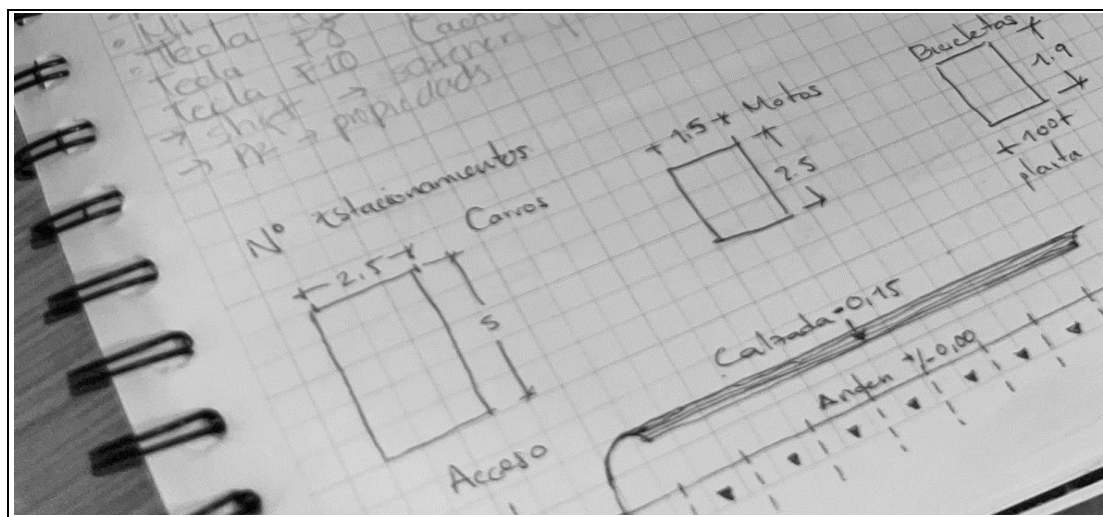 Tecla F8
Tecla F10
→ shift → obtener
→ PR → propiedads
Nº Estacionamientos
Carros
2.5
5
Motos
1.5
2.5
Bicicletas
1.9
100t
planta
Calzada -0,15
Anden +/-0,00
Acceso